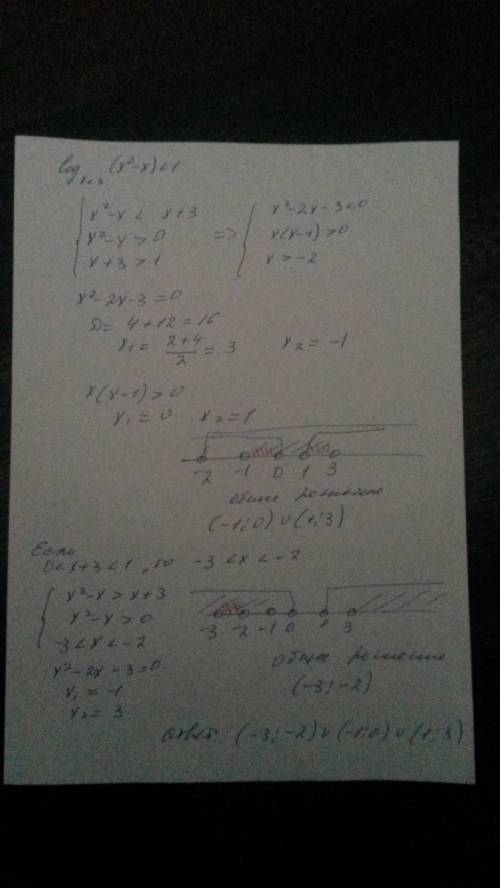 log_{x+3} (x²-x)<1
{ x²-x < x+3
x²-x > 0
x+3 > 1
=> { x²-2x-3<0
x(x-1)>0
x>-2
x²-2x-3=0
D= 4+12=16
x₁= (2+4)/2 = 3 x₂= -1
x(x-1)>0
x₁=0 x₂=1
-2 -1 0 1 3
общее решение
(-1;0)∪(1;3)
Если
0<x+3<1, то -3<x<-2
{ x²-x > x+3
x²-x>0
-3<x<-2
x²-2x-3=0
x₁=-1
x₂=3
-3 -2 -1 0 1 3
общее решение
(-3;-2)
Ответ (-3;-2)∪(-1;0)∪(1;3)